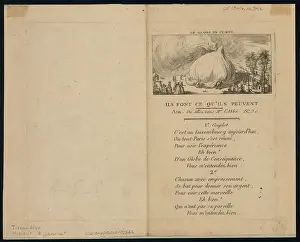 LE GLOBE EN FUMÉE
ILS FONT CE QU'ILS PEUVENT
Air: Où allez vous Mr l'Abbé &c.
1er Couplet
C'est au Luxembourg qu'aujourd'hui,
Où tout Paris s'est réuni,
Pour voir l'expérience
Eh bien!
D'un Globe de Conséquence,
Vous m'entendez bien.
2e
Chacun avec empressement,
Se bat pour donner son argent,
Pour voir cette merveille
Eh bien!
Qui n'eut pas sa pareille
Vous m'entendez bien.